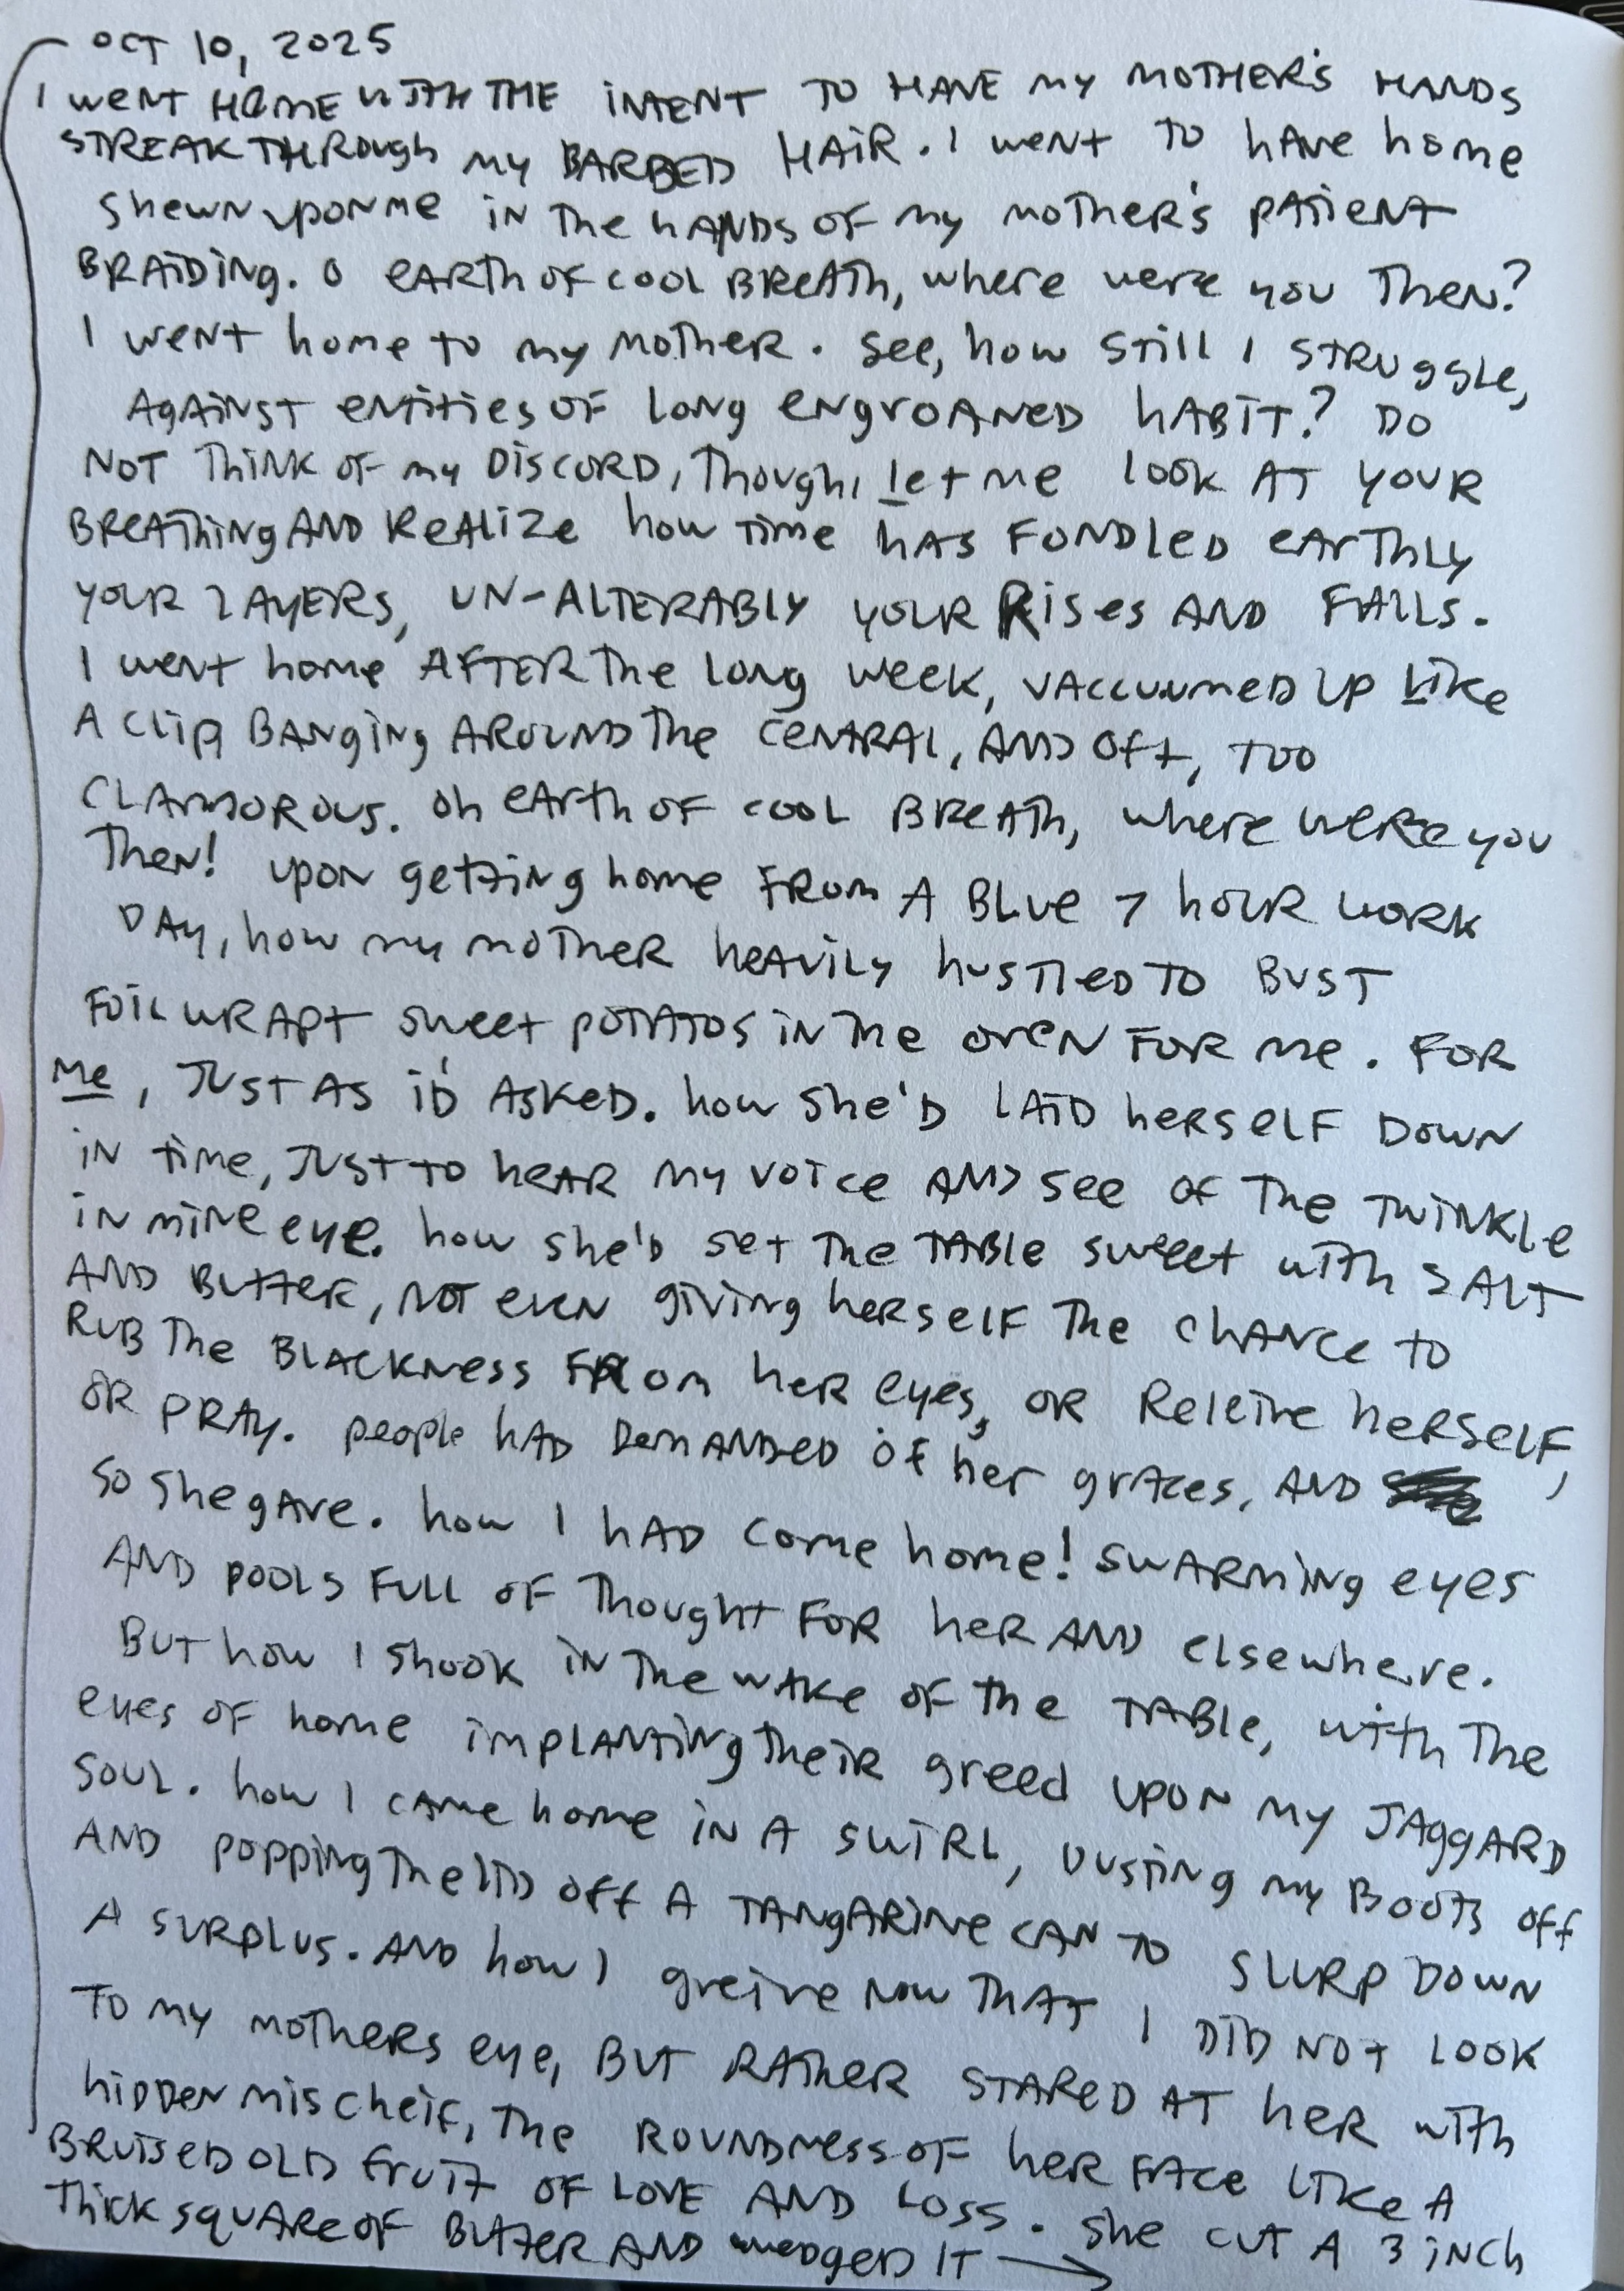 OCT 10, 2025
I weNT HOME WITH THE iNTENT TO HAVE MY MOTHER'S HANDS
STREAK THROugh my BARBED HAiR. I weNT TO hAVe home
shewN upoN me iN The hANDS OF my moTher's pATieNT
BRAiDiNg. O eARTh OF cooL BReATh, where were you TheN?
I weNT home to my moTheR. see, how sTill I STRUggLe,
AgAiNST eNTiTies OF loNg eNgroANeD hABiT? DO
NOT ThiNK OF my DiSCORD, Though, let me look AT YOUR
BReAThiNg AND ReALize how Time hAS FONDLeD eARThLy
your LAYERS, UN-ALTERABLY YOUR Rises AND FALLS.
I weNT home AFTeR The loNg week, VAccuumeD up Like
A clip BANgiNg AROUND The ceNTRAL, AND oft, TOO
CLAMOROUS. Oh eARTh OF cooL BReATh, where weRe you
TheN! upoN geTTiNg home FRom A BLue 7 hoUR woRK
DAy, how my moTheR heAViLy husTleD TO BUST
FOiL WRAPT sweeT poTATOS iN The oveN FoR me. FOR
me, JUST AS i'D ASKeD. how She'D LAiD heRselF DowN
iN Time, JUST To heAR my voice AND see oF The TwiNKle
iN miNe eye. how she'D seT The TABle sweeT wiTh SALT
AND BuTTeR, NOT eveN giviNg heRselF The ChANce To
RUB The BLACKNess FRom heR eyes, OR ReLeive heRselF,
OR PRAy. people hAD DemANDeD oF her grAces, AND
so she gAve. how I hAD come home! swARmiNg eyes
AND pools FuLL oF ThoughT FoR heR AND elsewhere.
BuT how I shook iN The wAKe oF the TABle, wiTh The
eyes oF home impLANTiNg TheiR greed upoN my JAggARD
souL. how I cAme home iN A swiRL, DusTiNg my BooTs off
AND poppiNg The liD off A TANgARiNe cAN To SLURP DowN
A SuRplus. AND how I greive Now ThAT I DiD NOT LOOK
To my moTheRs eye, BuT RATheR STAReD AT heR wiTh
hiDDeN mischeif, The RouNDNess oF heR FAce Like A
BRuiseD oLD fruiT oF LovE AND Loss. she cuT A 3 iNch
Thick squARe oF BuTTeR AND weDgeD IT →